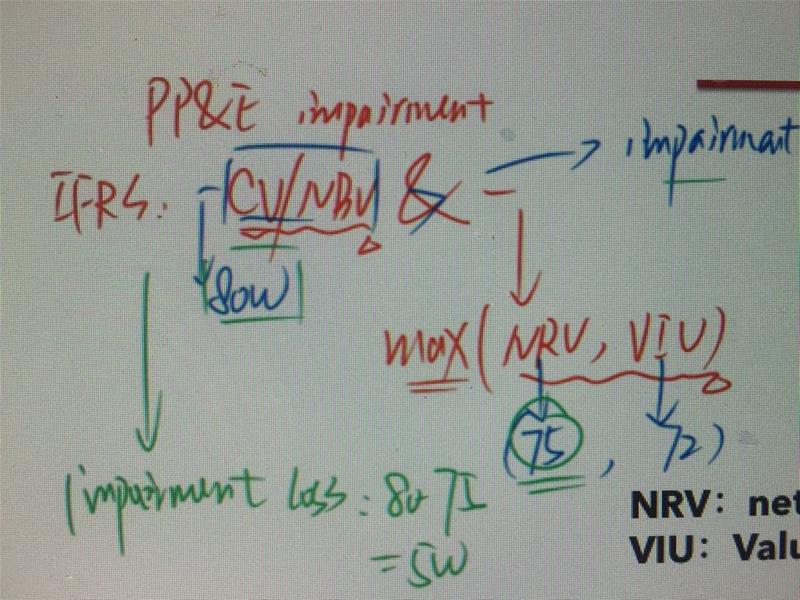 PP&E impairment
IFRS: CV/NBV & → impairmat
80W
max(NRV, VIU)
(75, 72)
impairment loss: 80-75
=5W
NRV: net
VIU: Valu